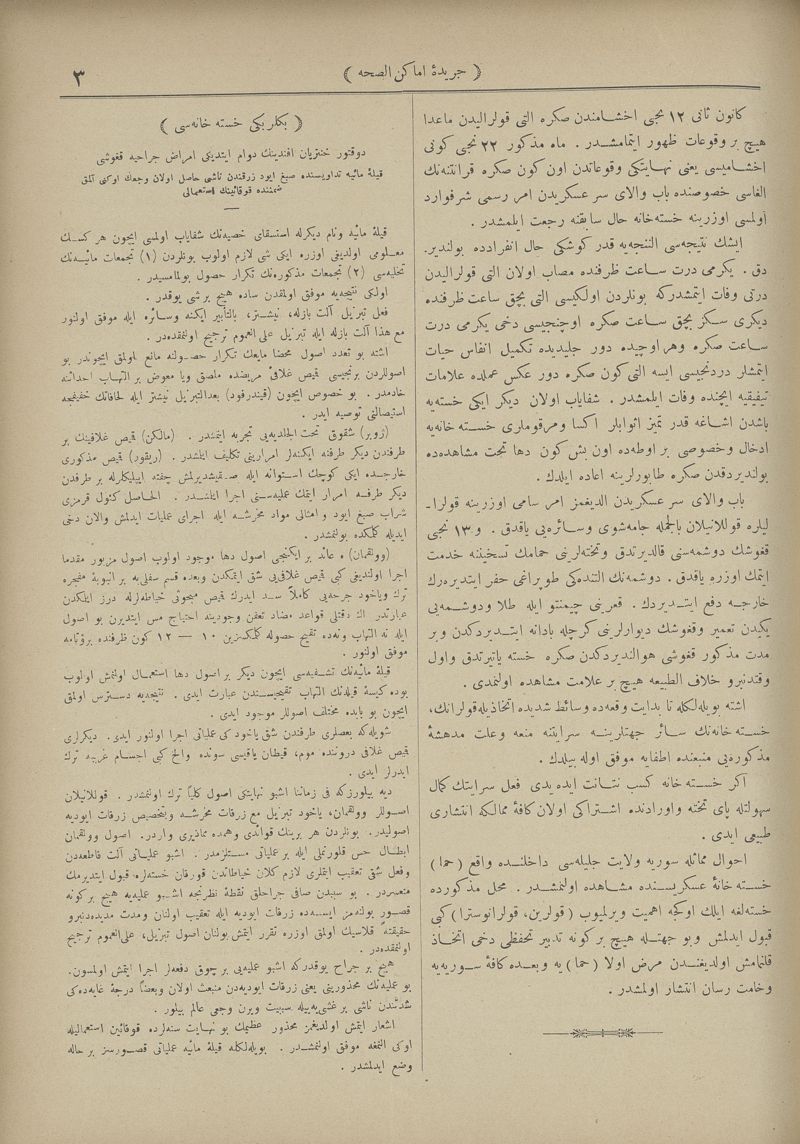 ﴿ جريدۀ اماكن الصحه ﴾
٣
كانون ثانی ١٢ نجی اخشامندن صكره التی قولراليدن ماعدا
هيچ بر وقوعات ظهور ايتمامشدر . ماه مذكور ٢٢ نجی كونی
اخشاميسی يعنی نهايتكی وقوعاتدن اون كون صكره قرانتنه‌نك
الغاسی خصوصنده باب والای سر عسكريدن امر رسمی شرفوارد
اولمسی اوزرينه خسته‌خانه حال سابقنه رجعت ايلمشدر .
ايشك نتيجه‌سی التنجه‌يه قدر كوشكی حال انفرادده بولندير.
دق . يكرمی درت ساعت ظرفنده مصاب اولان التی قولراليدن
درتی وفات ايتمشدركه بونلردن اولكيسی التی بچق ساعت ظرفنده
ديكری سكز بچق ساعت صكره اوچنجيسی دخی يكرمی درت
ساعت صكره وهر اوچيده دور جليديده تكميل انفاس حيات
ايتمشلر دردنجيسی ايسه التی كون صكره دور عكس عملده علامات
تيفيقيه ايچنده وفات ايلمشدر . شفاياب اولان ديكر ايكی خسته‌يه
باشدن اشاغه قدر تميز اثوابلر اكسا ومرقوملری خسته خانه‌يه
ادخال وخصوصی بر اوطه‌ده اون بش كون دها تحت مشاهده‌ده
بولنديردقدن صكره طابورلرينه اعاده ايلدك .
باب والای سر عسكريدن الديغمز امر سامی اوزرينه قولرا-
ليلره قوللانيلان بالجمله جامه‌شوی وسائره‌يی ياقدق . و ١٣ نجی
قغوشك دوشمه‌سی قالديرتدق وتخته‌لرينی حمامك تسخيننه خدمت
ايتمك اوزره ياقدق . دوشمه‌نك التنده‌كی طوپراغی حفر ايتديره‌رك
خارجه دفع ايتديردك . قعرينی چيمنتو ايله طلا ودوشمه‌يی
يكيدن تعمير وقغوشك ديوارلرينی كرچله بادانه ايتديردكدن وبر
مدت مذكور قغوشی هوالندير‌دكدن صكره خسته ياتيرتدق واول
وقتدنبرو خلاف الطبيعه هيچ بر علامت مشاهده اولنمدی .
اشته بويله‌لكله تا بدايت وقعه‌ده وسائط شديده اتخاذيله قولرانك،
خسته‌خانه‌نك سائر جهتلرينه سرايتنه منعه وعلت مدهشۀ
مذكوره‌يی منبعنده اطفايه موفق اوله بيلدك .
اكر خسته خانه كسب نتانت ايده‌يدی فعل سرايتك كمال
سهولتله پای تخته واورادنده اشتراكی اولان كافۀ ممالكه انتشاری
طبيعی ايدی .
احوال مماثله سوريه ولايت جليله‌سی داخلنده واقع (حما)
خسته خانۀ عسكريسنده مشاهده اولنمشدر . محل مذكورده
خسته‌لغه ايلك اوكجه اهميت ويرلميوب (قولرين، قولرانوسترا) كبی
قبول ايدلمش وبو جهتله هيچ بر كونه تدبير تحفظی دخی اتخاذ
قلنمامش اولديغندن مرض اولا (حما) يه وبعده كافۀ سوريه‌يه
وخامت رسان انتشار اولمشدر .
﴿ بكلربكی خسته خانه‌سی ﴾
دوقتور خنتزيان افندينك دوام ايتديكی امراض جراحيه قغوشی
قيلۀ مائيه تداويسنده صبغ ايود زرقندن ناشی حاصل اولان وجعك اوكنی آلمق
ضمننده قوقائينك استعمالی
قيلۀ مائيه ونام ديكرله استسقای خصيه‌نك شفاياب اولمسی ايچون هر كسك
معلومی اولديغی اوزره ايكی شی لازم اولوب بونلردن (١) تجمعات مائيه‌نك
تخليه‌سی (٢) تجمعات مذكوره‌نك تكرار حصول بولمامسيدر .
اولكی نتيجه‌يه موفق اولمقدن ساده هيچ برشی يوقدر .
فعل تبزيل آلت بازله، نيشتر، بالتأبير ايكنه وسائره ايله موفق اولنور
مع هذا آلت بازله ايله تبزيل علی‌العموم ترجيح اولنمقده‌در .
اشته بو تعدد اصول محضا مايعك تكرار حصولنه مانع اولمق ايچوندر بو
اصوللردن برنجيسی قميص غلافیٔ مريضده ملصق ويا معوض بر التهاب احداثنه
خادمدر . بو خصوص ايچون (قيندرفود) بعدالتبزيل نيشتر ايله لحافاتك خفيفجه
استيصالنی توصيه ايدر .
(زوبر) شقوق تحت‌الجلديه‌يی تجربه ايتمشدر . (مالكن) قميص غلافينك بر
طرفندن ديكر طرفنه ايكنه‌لر امرارينی تكليف ايلمشدر . (ريقود) قميص مذكوری
خارجده ايكی كوچك استوانه ايله صيقيشديرلمش چفته ايپليكلرله بر طرفدن
ديكر طرفه امرار ايتمك عمليه‌سنی اجرا ايلمشدر . الحاصل كئول قرمزی
شراب صبغ ايود وامثالی مواد مخرشه ايله اجرای عمليات ايدلمش والان دخی
ايديله كلمكده بولنمشدر .
(وولقمان) ه عائد بر ايكنجی اصول دها موجود اولوب اصول مزبور مقدما
اجرا اولنديغی كبی قميص غلافی‌يی شق ايتمكدن وبعده قسم سفلی‌يه بر انبوبۀ مفجره
ترك وياخود جرحه‌يی كاملاً سد ايدرك قميص مبحوثی خياطه‌لرله درز ايلمكدن
عبارتدر اك دقتلی قواعد مضاد تعفن وجودينه احتياج مس ايتديرن بو اصول
ايله نه التهاب ونه‌ده تقيح حصوله كلمكسزين ١٠ — ١٢ كون ظرفنده برؤتامه
موفق اولنور .
قيلۀ مائيه‌نك تشفيه‌سی ايچون ديكر بر اصول دها استعمال اولنمش اولوب
بوده كيسۀ قيله‌نك التهاب تقيحيسندن عبارت ايدی . نتيجه‌يه دسترس اولمق
ايچون بو بابده مختلف اصوللر موجود ايدی .
شويله‌كه بعضلری طرفندن شق ياخود كی عملياتی اجرا اولنور ايدی . ديكرلری
قميص غلافی دروننده موم، قيطان ياقيسی سونده والخ كبی اجسام غريبه ترك
ايدرلر ايدی .
ديه بيلورزكه فی زماننا اشبو نهايتكی اصول كلياً ترك اولنمشدر . قوللانيلان
اصوللر وولقمان، ياخود تبزيل مع زرقات مخرشه وبتخصيص زرقات ايوديه
اصوليدر. بونلردن هر برينك فوائدی وهمده محاذيری واردر. اصول وولقمان
ابطال حس قلورئملی ايله بر عملياتی مستلزمدر . اشبو عملياتی آلت قاطعه‌دن
وفعل شق تعقيب ايتملری لازم كلان خياطاتدن قورقان خسته‌لره قبول ايتديرمك
متعسردر . بو سببدن صافی جراحلق نقطۀ نظرنجه اشبو عمليه‌يه هيچ بر كونه
قصور بوله‌مز ايسه‌ده زرقات ايوديه ايله تعقيب اولنان ومدت مديده‌دنبرو
حقيقةً قلاسيك اولمق اوزره تقرر ايتمش بولنان اصول تبزيل، علی‌العموم ترجيح
اولنمقده‌در .
هيچ بر جراح يوقدركه اشبو عمليه‌يی بر چوق دفعه‌لر اجرا ايتمش اولمسون.
بو عمليه‌نك محذورينی يعنی زرقات ايوديه‌دن منبعث اولان وبعضاً درجۀ غايه‌ده‌كی
شدتندن ناشی بر غشی‌يه‌بيله سببيت ويرن وجعی عالم بيلور .
اشعار ايتمش اولديغمز محذور عظيمك بو نهايت سنه‌لرده قوقائين استعماليله
اوكی النمغه موفق اولنمشدر . بويله‌لكله قيلۀ مائيه عملياتی قصورسز بر حاله
وضع ايدلمشدر .